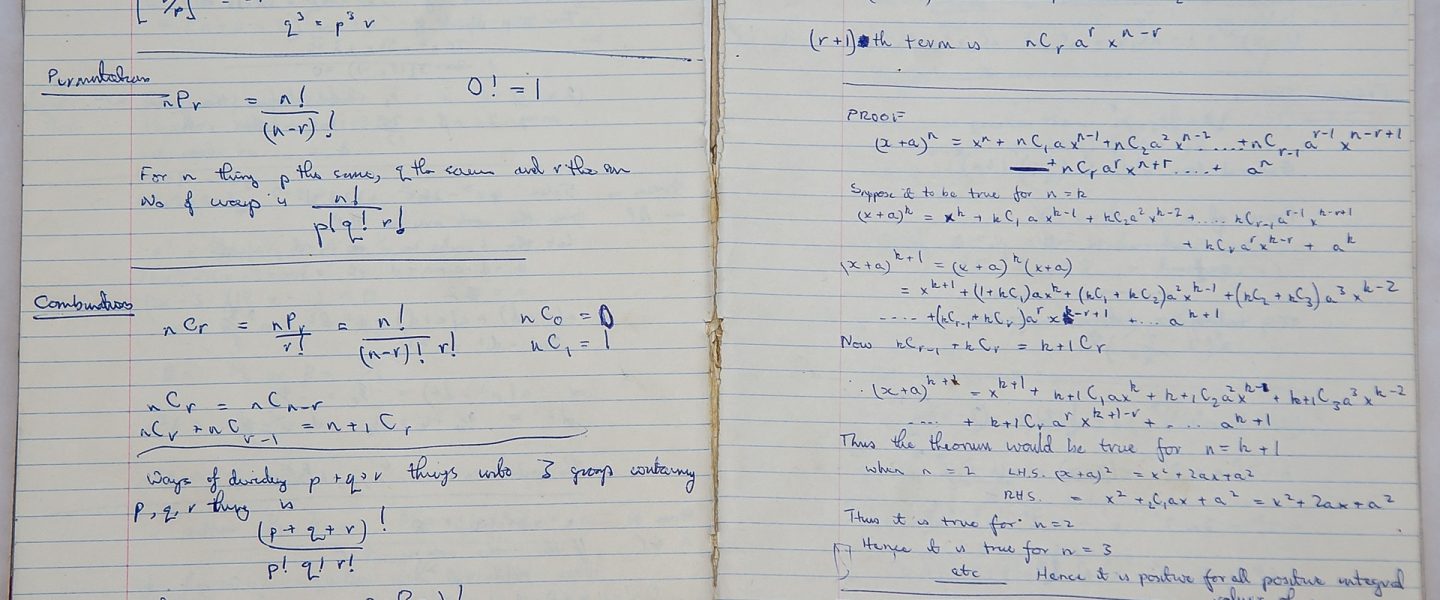 q³ = p³ r
Permutations
nPr = n! / (n-r)!    0! = 1
For n things p the same, q the same and r the same
No of ways is n! / p! q! r!
Combinations
nCr = nPr / r! = n! / (n-r)! r!    nC₀ = 0
nC₁ = 1
nCr = nCn-r
nCr + nCr-1 = n+1Cr
Ways of dividing p + q + r things into 3 groups containing
p, q, r things is
(p + q + r)! / p! q! r!
(r+1)th term is nCr aʳ xⁿ⁻ʳ
PROOF
(x+a)ⁿ = xⁿ + nC₁ a xⁿ⁻¹ + nC₂ a² xⁿ⁻² .... + nCr-1 aʳ⁻¹ xⁿ⁻ʳ⁺¹
+ nCr aʳ xⁿ⁺ʳ .... + aⁿ
Suppose it to be true for n = k
(x+a)ᵏ = xᵏ + kC₁ a xᵏ⁻¹ + kC₂ a² xᵏ⁻² + .... kCr-1 aʳ⁻¹ xᵏ⁻ʳ⁺¹
+ kCr aʳ xᵏ⁻ʳ + aᵏ
(x+a)ᵏ⁺¹ = (x+a)ᵏ (x+a)
= xᵏ⁺¹ + (1+kC₁) a xᵏ + (kC₁ + kC₂) a² xᵏ⁻¹ + (kC₂ + kC₃) a³ xᵏ⁻²
.... + (kCr-1 + kCr) aʳ xᵏ⁻ʳ⁺¹ + ... aᵏ⁺¹
Now kCr-1 + kCr = k+1Cr
∴ (x+a)ᵏ⁺¹ = xᵏ⁺¹ + k+1C₁ a xᵏ + k+1C₂ a² xᵏ⁻¹ + k+1C₃ a³ xᵏ⁻²
.... + k+1Cr aʳ xᵏ⁺¹⁻ʳ + .... aᵏ⁺¹
Thus the theorum would be true for n = k+1
when n = 2 L.H.S. (x+a)² = x² + 2ax + a²
RHS. = x² + ₂C₁ax + a² = x² + 2ax + a²
Thus it is true for n = 2
Hence it is true for n = 3
etc Hence it is positive for all positive integral